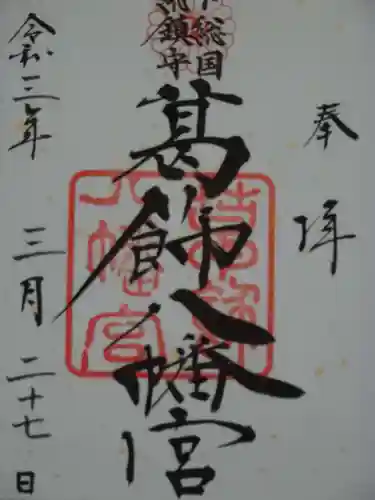 奉拝
下総国
総鎮守
葛飾八幡宮
葛飾
八幡宮
令和三年
三月二十七日